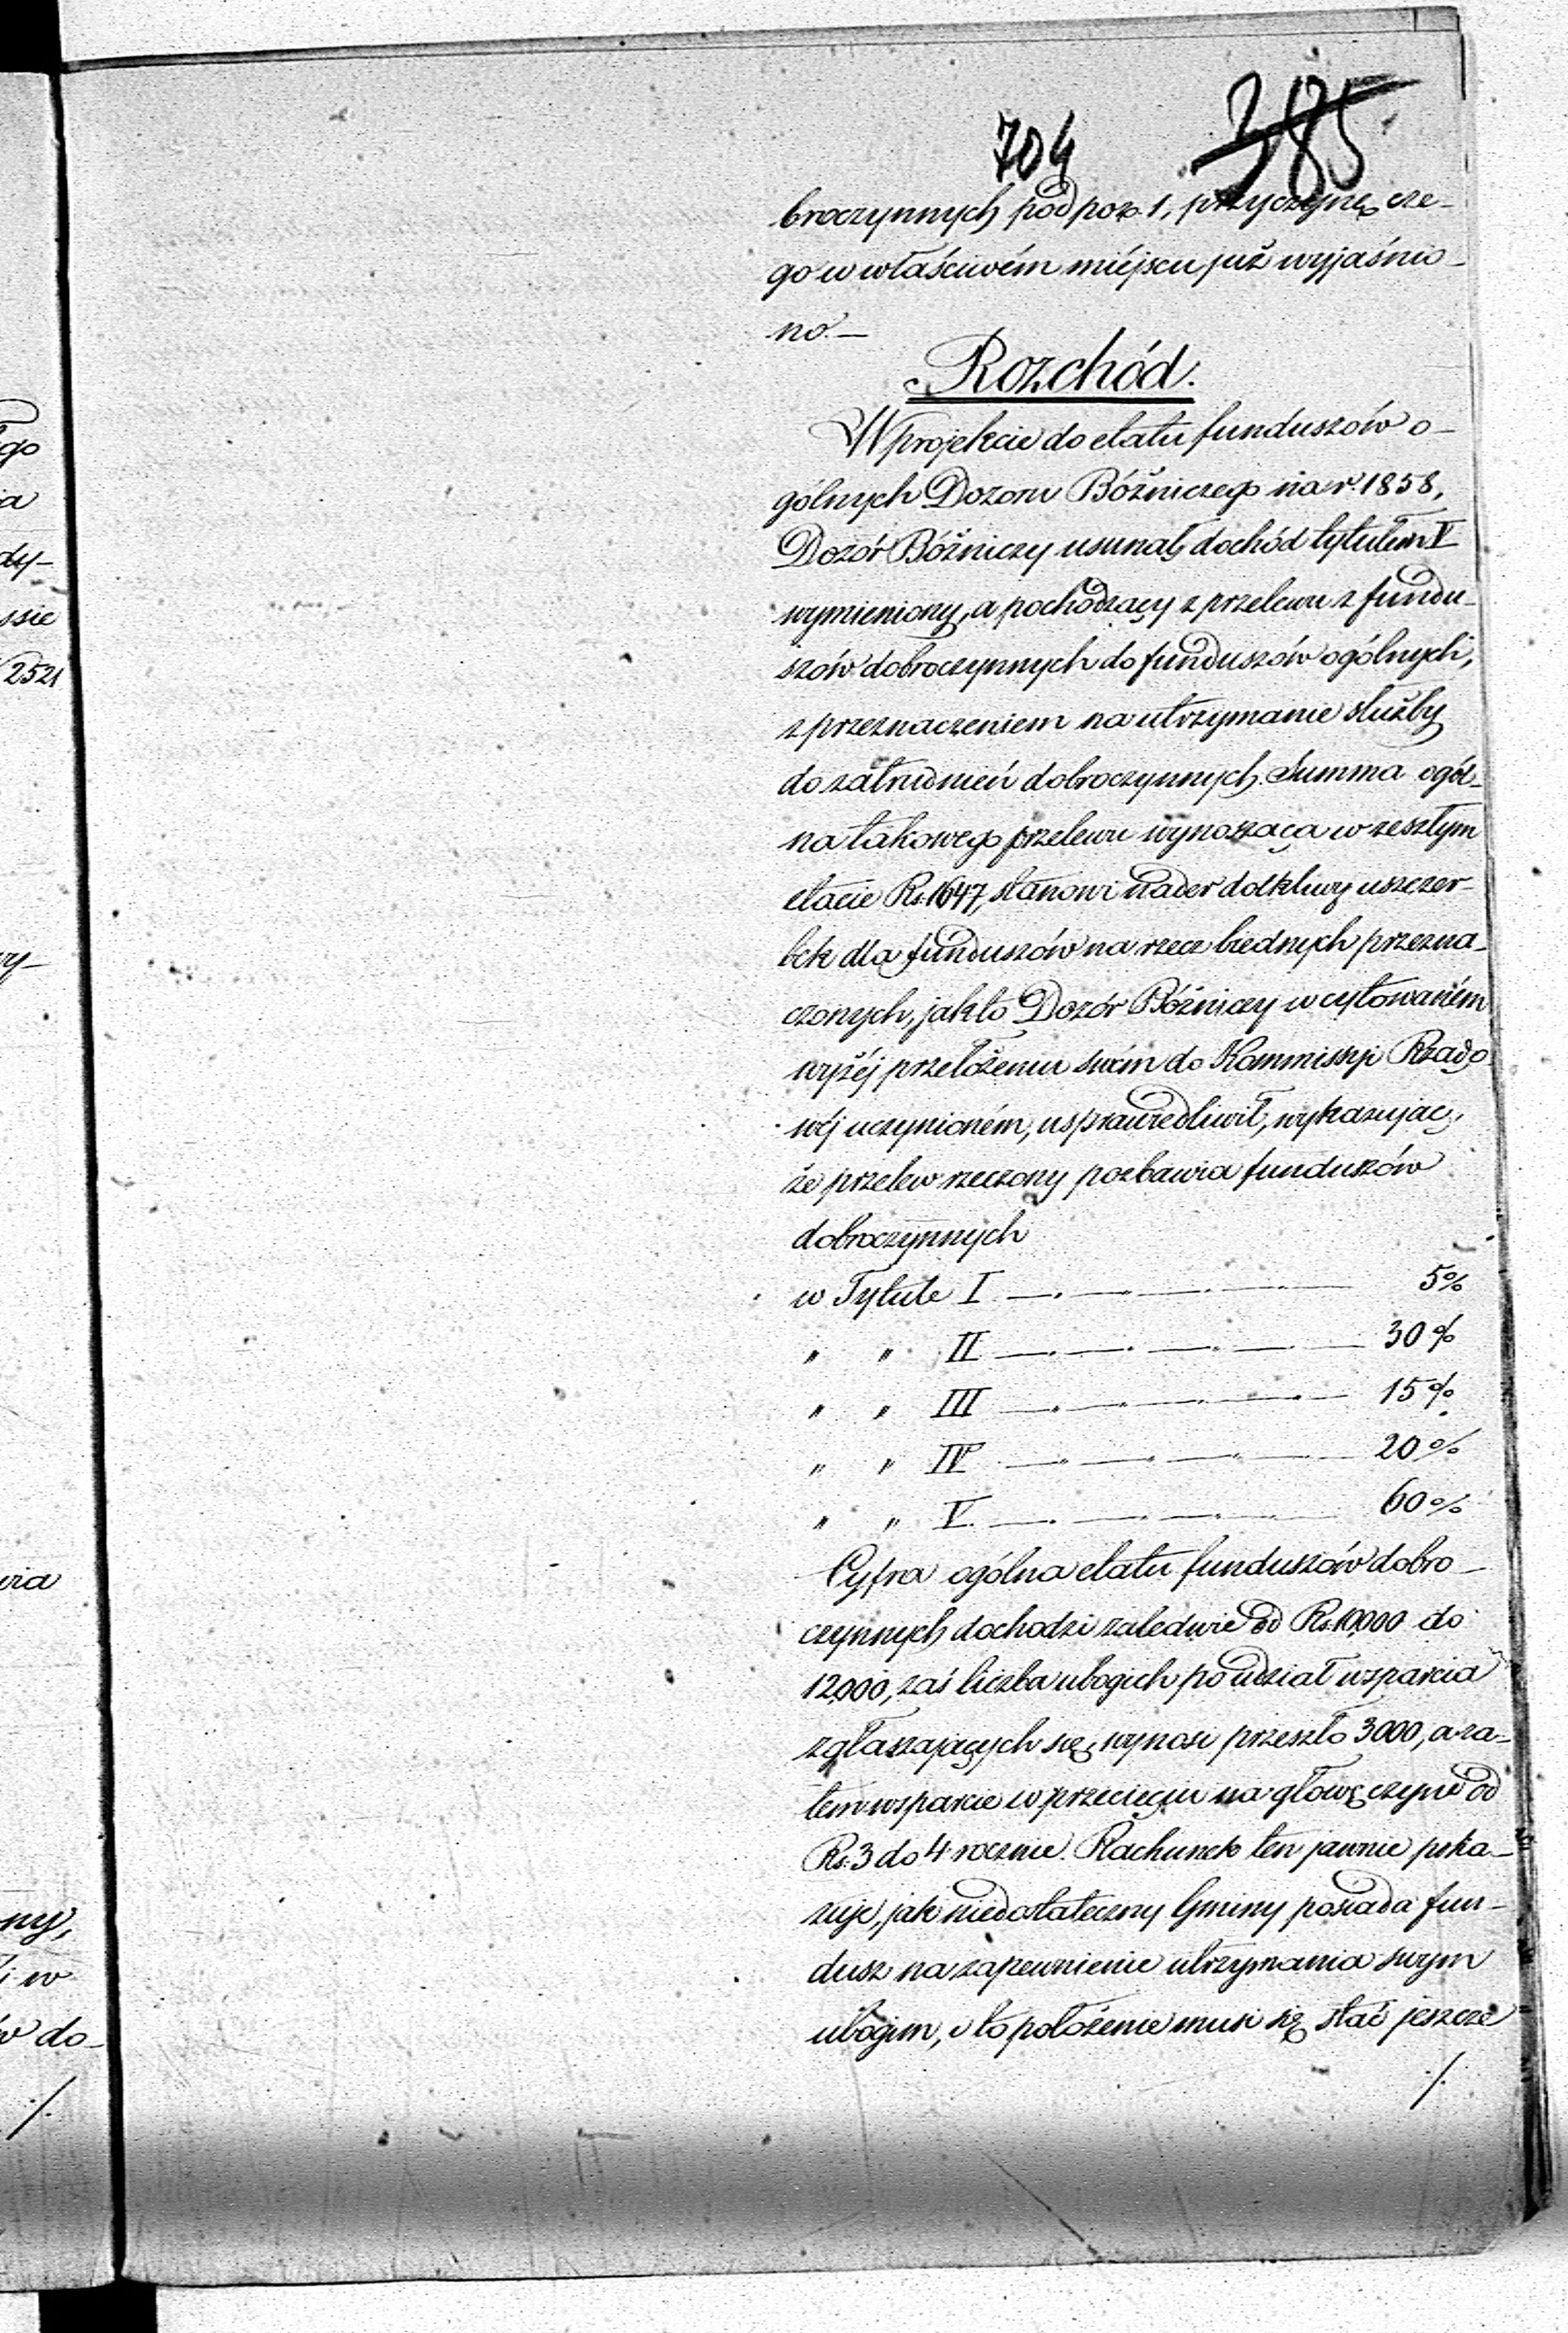 704 385
broczynnych pod poz. 1, przyczynę cze-
go w właściwém miéjscu już wyjaśnio-
no.—
Rozchód.
W projekcie do etatu funduszów o-
gólnych Dozoru Bóżniczego na r. 1858,
Dozór Bóżniczy usunął dochód tytułem V
wymieniony, a pochodzący z przelewu z fundu-
szów dobroczynnych do funduszów ogólnych,
z przeznaczeniem na utrzymanie służby
do zatrudnień dobroczynnych. Summa ogól-
na takowego przelewu wynosząca w zeszłym
etacie Rs. 1647, stanowi nader dotkliwy uszczer-
bek dla funduszów na rzecz biednych przezna-
czonych, jak to Dozór Bóżniczy w cytowaném
wyżéj przełożeniu swém do Kommissyi Rządo
wéj uczynioném, usprawiedliwił, wykazując,
że przelew rzeczony pozbawia funduszów
dobroczynnych
w Tytule I 5%
" " II 30%
" " III 15%
" " IV 20%
" " V 60%
Cyfra ogólna etatu funduszów dobro-
czynnych dochodzi zaledwie od Rs. 10,000 do
12,000, zaś liczba ubogich po udział wsparcia
zgłaszających się, wynosi przeszło 3000, a za-
tem wsparcie w przecięciu na głowę czyni od
Rs. 3 do 4 rocznie. Rachunek ten jawnie poka-
zuje, jak niedostateczny Gminy posiada fun-
dusz na zapewnienie utrzymania swym
ubogim, i to położenie musi się stać jeszcze
./.
go
ia
dy-
ssie
2521
ry-
wia
ny,
i w
w do-
./.